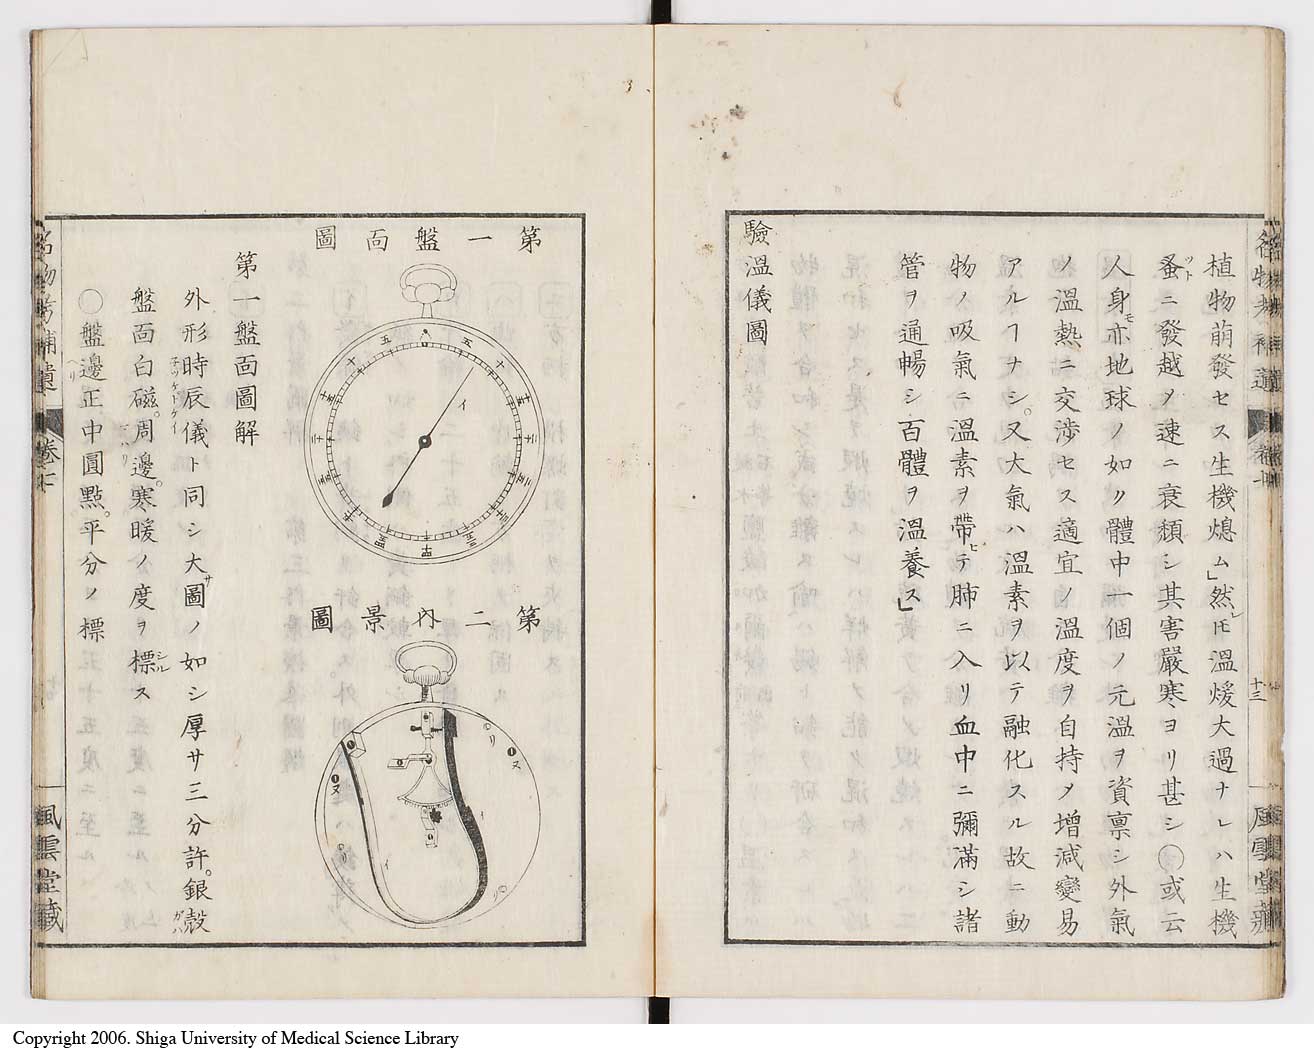 植物萠發セス生機熄ム」然レ𪜈溫煖大過ナレハ生機
蚤ツトニ發越ノ速ニ衰頽シ其害嚴寒ヨリ甚シ〇或云
人身モ亦地球ノ如ク體中一個ノ元溫ヲ資禀シ外氣
ノ溫熱ニ交渉セス適宜ノ溫度ヲ自持ノ增減變易
アルヿナシ。又大氣ハ溫素ヲ以テ融化スル故ニ動
物ノ吸氣ニ溫素ヲ帶ヒテ肺ニ入リ血中ニ彌滿シ諸
管ヲ通暢シ百體ヲ溫養ス」
驗溫儀圖
名物考補遺
卷七
十三
風雲堂藏
第一盤面圖
五
十
イ
第二內景圖
モリ
ヌ
ヌ
リ
イ
第一盤面圖解
外形時辰儀ト同シ大サ圖ノ如シ厚サ三分許。銀殼ガハ
盤面白磁。周邊。寒暖ノ度ヲ標シルス
〇盤邊ヘリ正中圓點。平分ノ標
名物考補遺
卷七
風雲堂藏
Copyright 2006. Shiga University of Medical Science Library